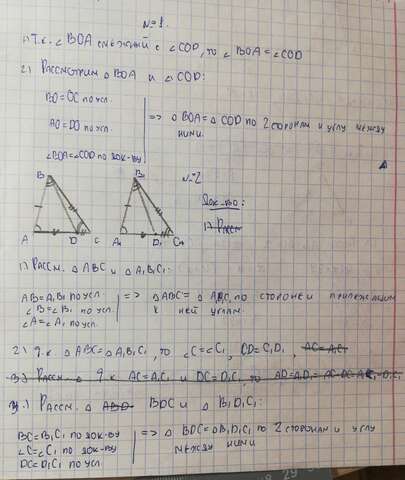 №1.
1) Т.к. ∠BOA смежный с ∠COD, то ∠BOA=∠COD
2) Рассмотрим △BOA и △COD:
BO=OC по усл.
AO=DO по усл.
∠BOA=∠COD по док-ву
=> △BOA=△COD по 2 сторонам и углу между
ними.
№2
Док-во:
1) Расс
B
A D C
B₁
A₁ D₁ C₁
1) Рассм. △ABC и △A₁B₁C₁:
AB=A₁B₁ по усл.
∠B=∠B₁ по усл.
∠A=∠A₁ по усл.
=> △ABC=△A₁B₁C₁ по стороне и прилежащим
к ней углам.
2) Т.к. △ABC=△A₁B₁C₁, то ∠C=∠C₁, CD=C₁D₁, AC=A₁C₁
3) Рассм. △ Т.к AC=A₁C₁ и DC=D₁C₁, то AD=A₁D₁=
3.) Рассм. △ ABD BDC и △B₁D₁C₁:
BC=B₁C₁ по док-ву
∠C=∠C₁ по док-ву
DC=D₁C₁ по усл.
=> △BDC=△B₁D₁C₁ по 2 сторонам и углу
между ними